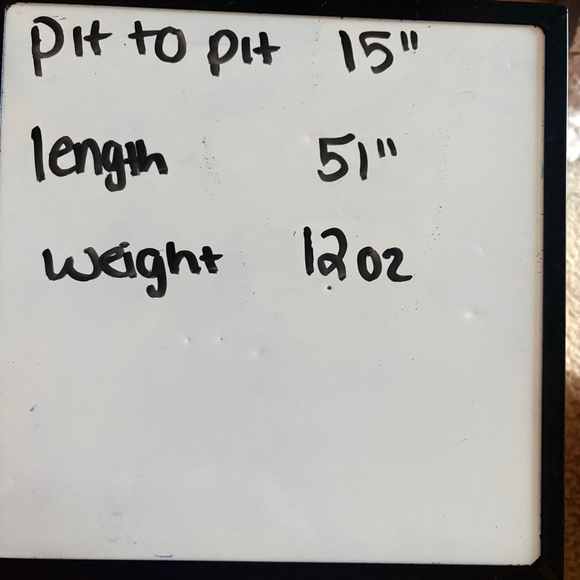 pit to pit 15"
length 51"
weight 12oz